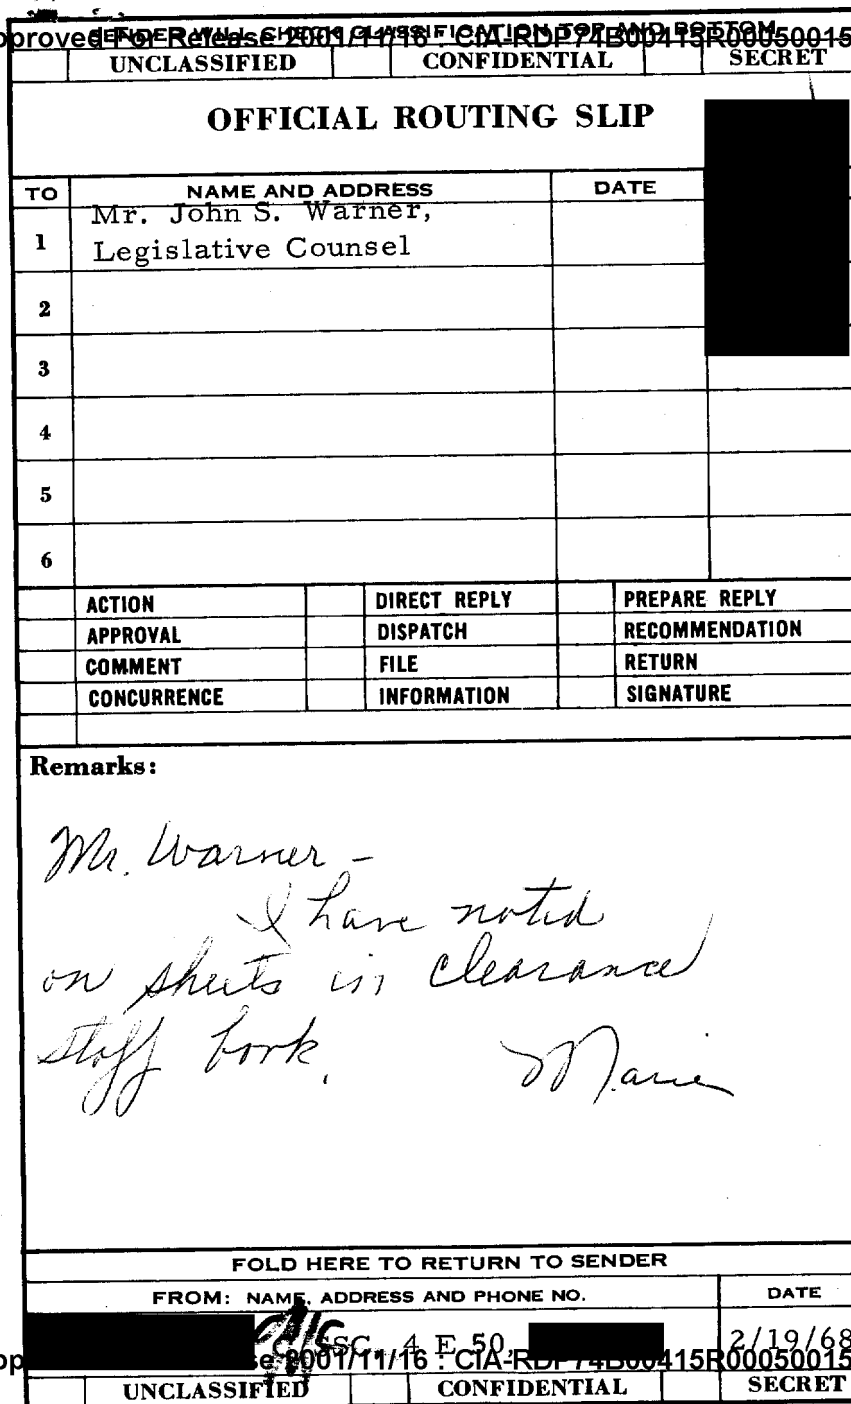 SENDER WILL CHECK CLASSIFICATION TOP AND BOTTOM
pproved For Release 2001/11/16 : CIA-RDP74B00415R00050015
UNCLASSIFIED CONFIDENTIAL SECRET
OFFICIAL ROUTING SLIP
TO NAME AND ADDRESS DATE
1 Mr. John S. Warner,
Legislative Counsel
2
3
4
5
6
ACTION DIRECT REPLY PREPARE REPLY
APPROVAL DISPATCH RECOMMENDATION
COMMENT FILE RETURN
CONCURRENCE INFORMATION SIGNATURE
Remarks:
Mr. Warner -
I have noted
on sheets in clearance
staff book.
Marie
FOLD HERE TO RETURN TO SENDER
FROM: NAME, ADDRESS AND PHONE NO. DATE
SSC, 4 E 50, 2/19/68
pp se 2001/11/16 : CIA-RDP74B00415R00050015
UNCLASSIFIED CONFIDENTIAL SECRET